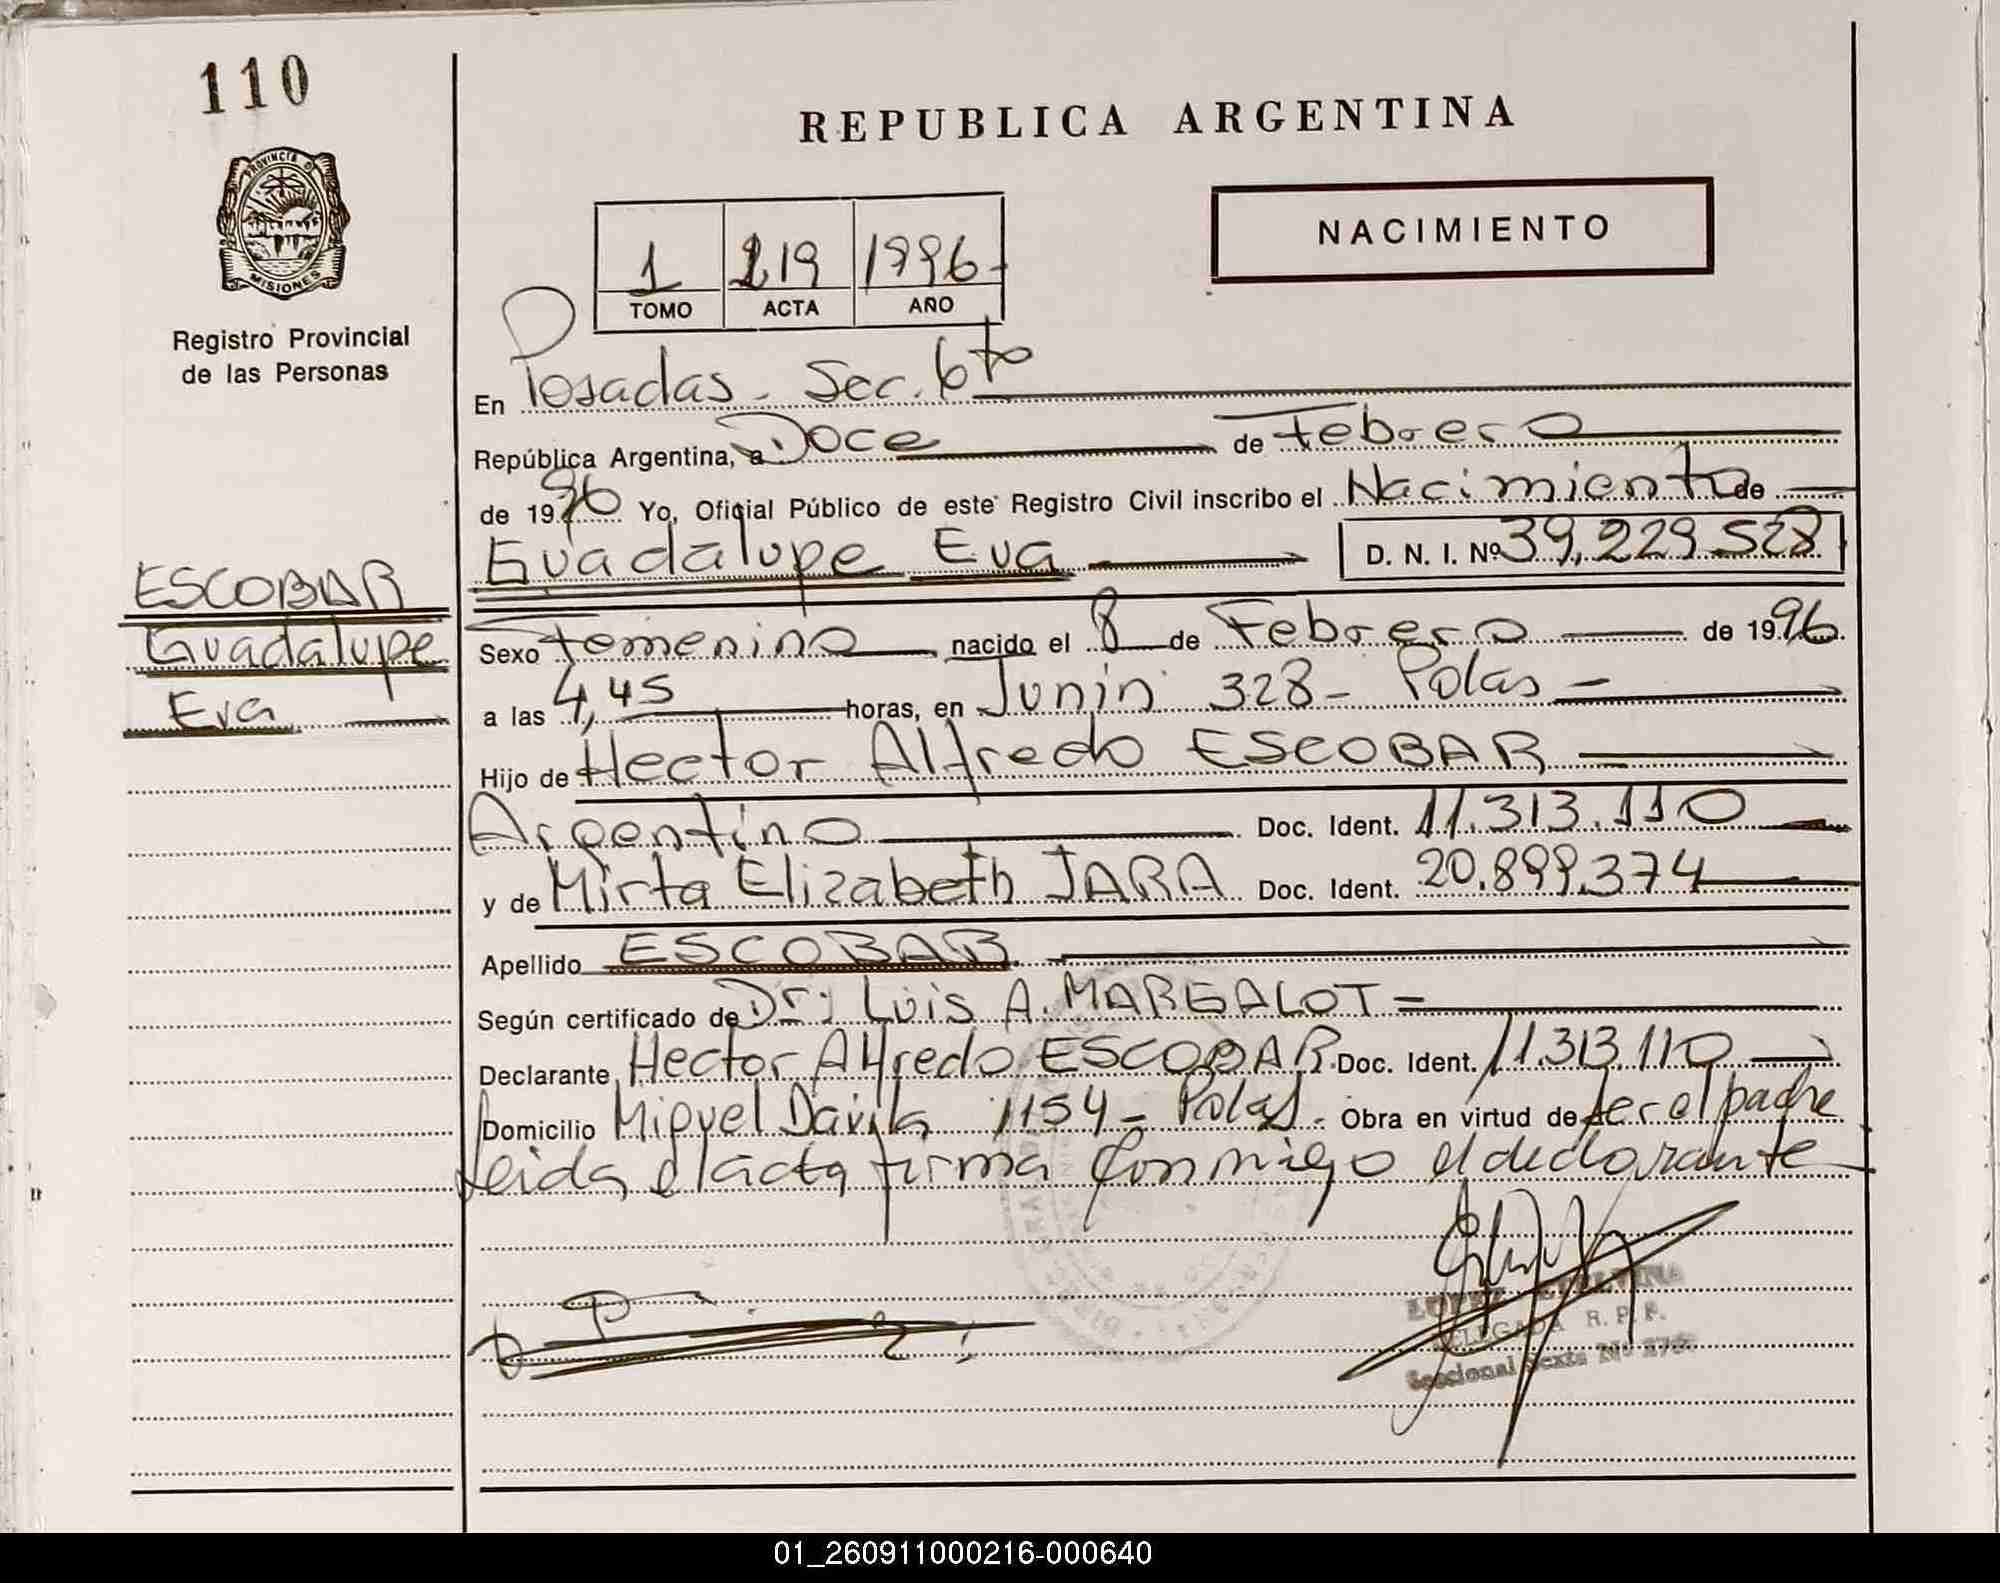 110
REPUBLICA ARGENTINA
PROVINCIA DE
MISIONES
Registro Provincial
de las Personas
NACIMIENTO
1 219 1996
TOMO ACTA AÑO
En Posadas - Sec. 6ta
República Argentina, a Doce de Febrero
de 1996 Yo, Oficial Público de este Registro Civil inscribo el Nacimiento de
Guadalupe Eva D. N. I. Nº 39,229 528
ESCOBAR
Guadalupe
Eva
Sexo Femenino nacido el 8 de Febrero de 1996.
a las 4,45 horas, en Junin 328 - Pdas -
Hijo de Hector Alfredo ESCOBAR
Argentino Doc. Ident. 11.313.110
y de Mirta Elizabeth JARA Doc. Ident. 20.899.374
Apellido ESCOBAR
Según certificado de Dr: Luis A. MARGALOT
Declarante Hector Alfredo ESCOBAR Doc. Ident. 11.313.110
Domicilio Miguel Davila 1154 - Pdas. Obra en virtud de ser el padre
Leida el acta firma conmigo el declarante
DELEGADA R. P. P.
Seccional Sexta Nº
01_260911000216-000640